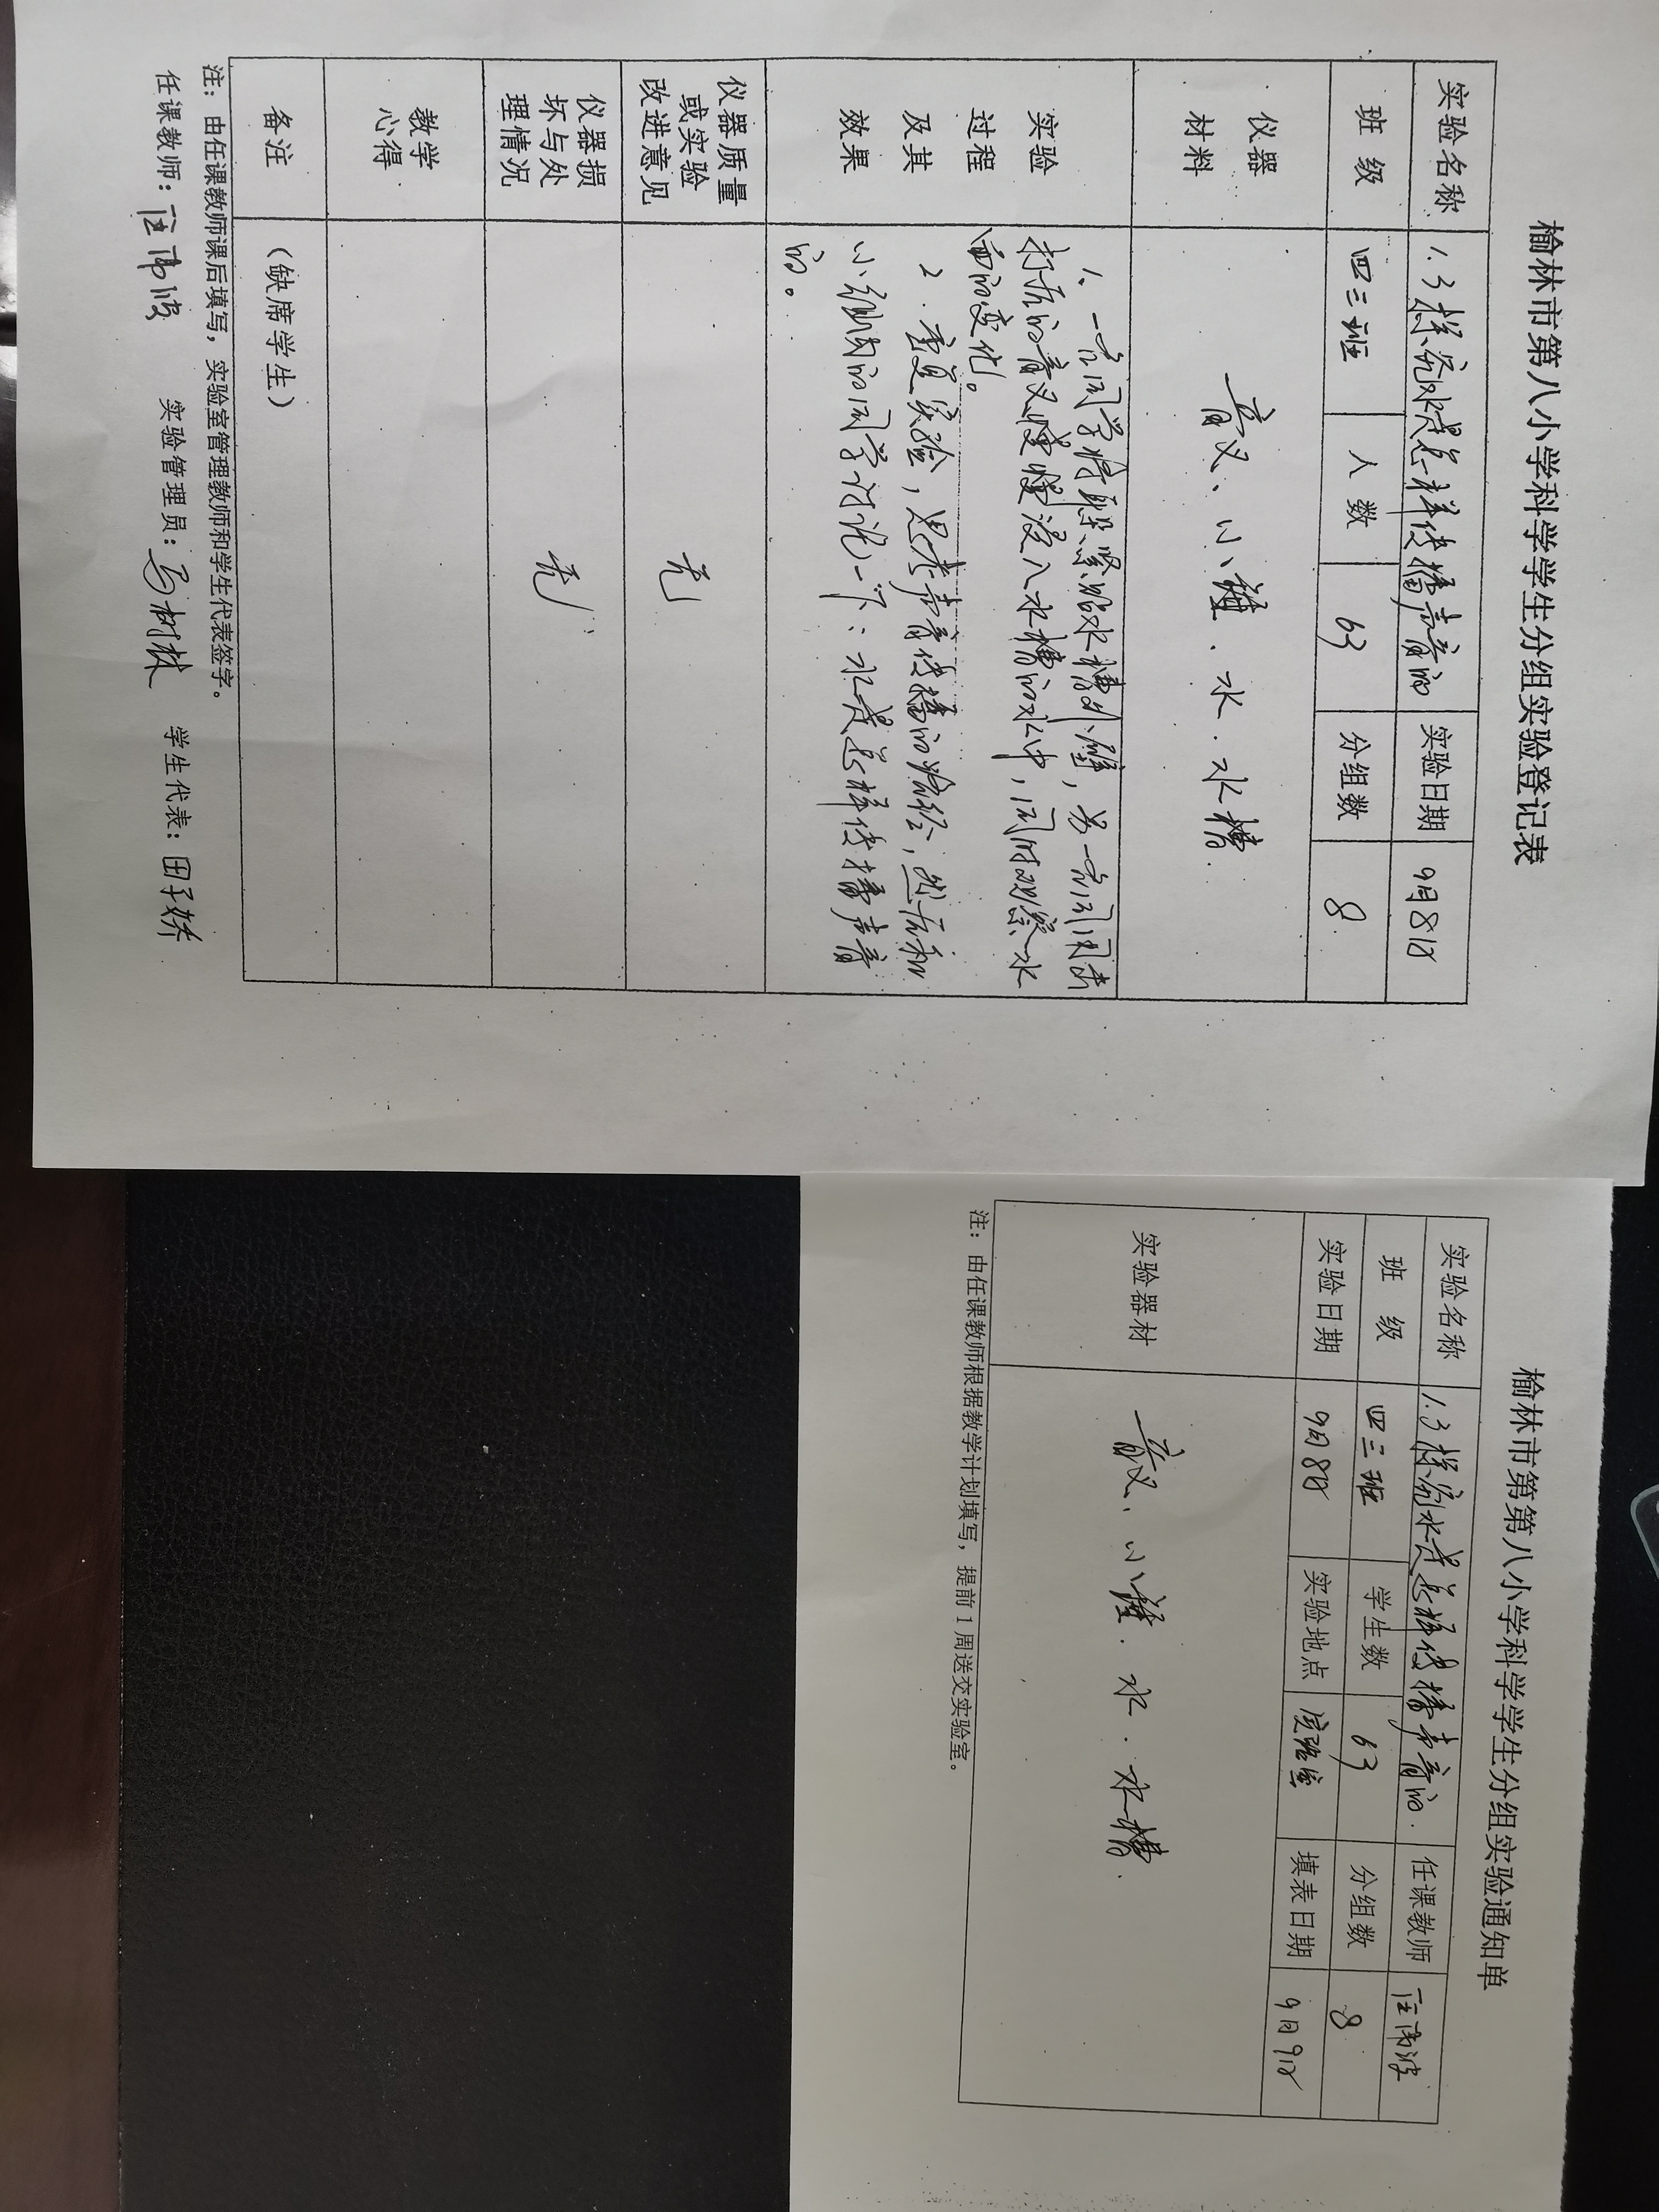 榆林市第八小学科学学生分组实验登记表
实验名称 1.3探究水是怎样传播声音的 实验日期 9月8日
班 级 四三班 人 数 63 分组数 8
仪器 材料 音叉、小锤.水.水槽.
实验 过程 及其 效果
1、一名同学将耳朵紧贴水槽外壁，另一名同用击
打后的音叉慢慢浸入水槽的水中，同时观察水
面的变化。
2.重复实验，思考声音传播的路径，然后和
小组内的同学讨论一下：水是怎样传播声音
的。
仪器质量 或实验 改进意见 无
仪器损 坏与处 理情况 无
教学 心得
备注 （缺席学生）
注：由任课教师课后填写，实验室管理教师和学生代表签字。
任课教师： 实验管理员： 树林 学生代表：田子娇
榆林市第第八小学科学学生分组实验通知单
实验名称 1.3探究水是怎样传播声音的. 任课教师
班 级 四三班 学生数 63 分组数 8
实验日期 9月8日 实验地点 实验室 填表日期 9月9日
实验器材 音叉、小锤.水.水槽.
注：由任课教师根据教学计划填写，提前1周送交实验室。